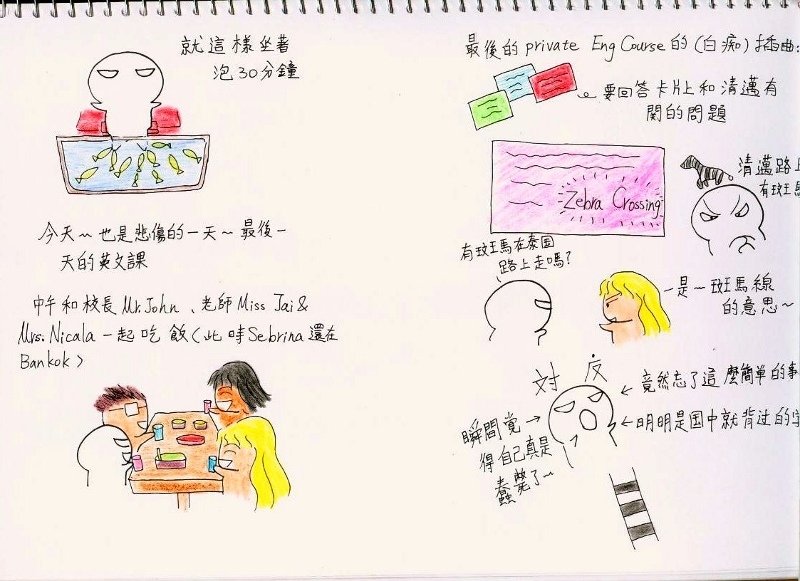 就這樣坐著
泡30分鐘
今天~也是悲傷的一天~最後一
天的英文課
中午和校長Mr.John、老師Miss Jai &
Mrs. Nicala一起吃飯(此時Sebrina還在
Bankok)
最後的private Eng Course的(白痴)插曲:
要回答卡片上和清邁有
関的問題
Zebra Crossing
清邁路上
有斑馬
有斑馬在泰国
路上走嗎?
是~斑馬線
的意思~
竟然忘了這麼簡單的事
明明是国中就背过的字
瞬間覚
得自己真是
蠢斃了~